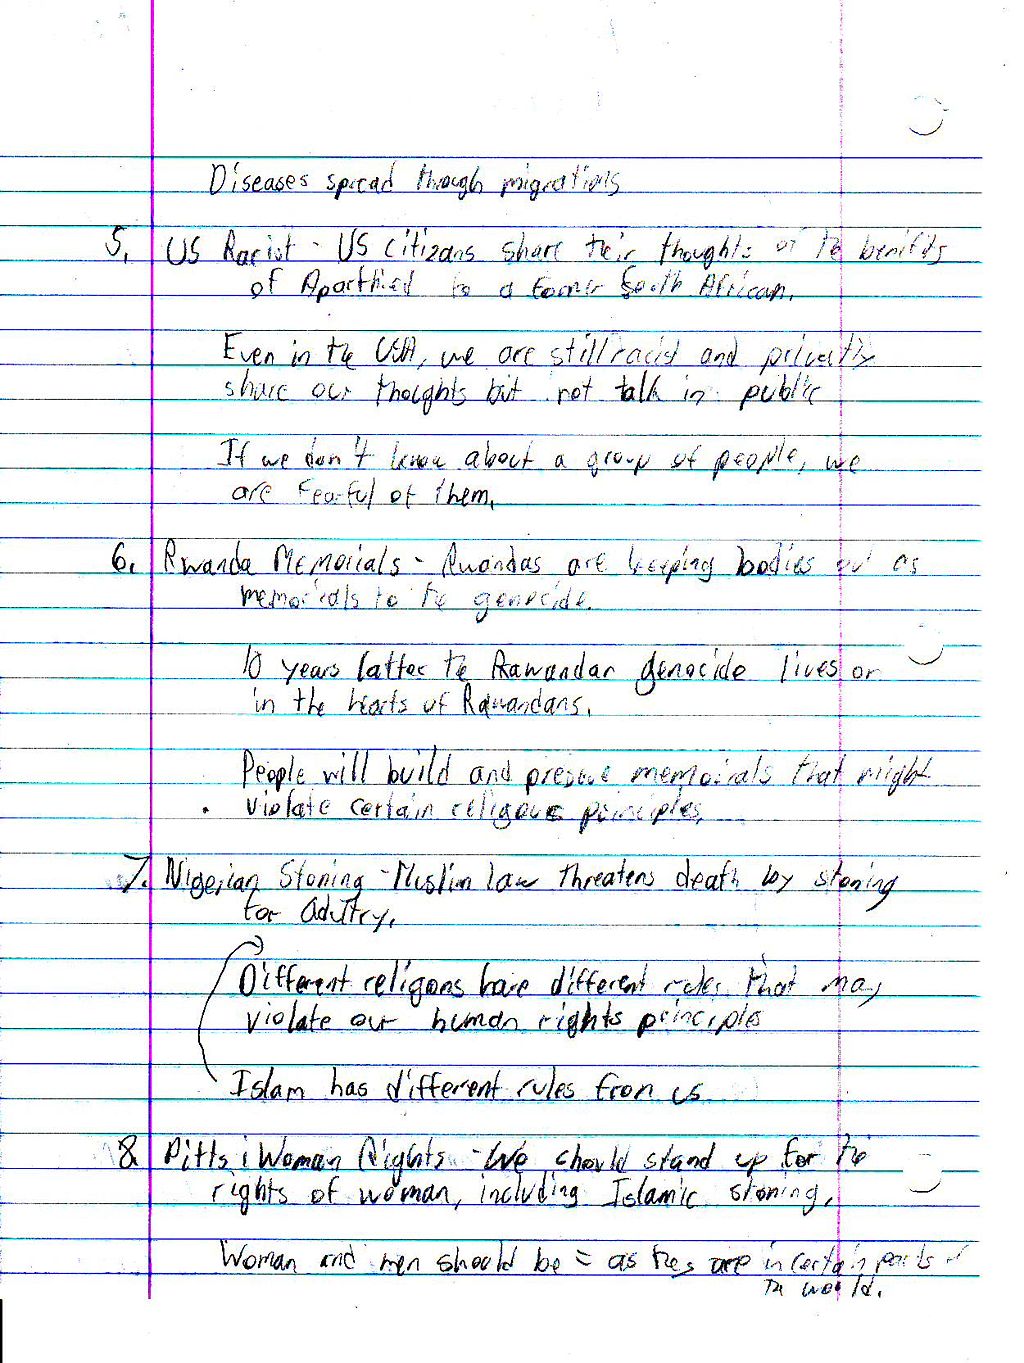 Diseases spread through migrations
5. US Racist - US citizans share their thoughts of the benifits
of Aparthied to a former South African.
Even in the USA, we are still racist and privatly
share our thoughts but not talk in public
If we don't know about a group of people, we
are fearful of them.
6. Rwanda Memorials - Rwandas are keeping bodies out as
memorials to the genocide.
10 years latter the Rawandan genocide lives on
in the hearts of Rawandans.
People will build and preseve memoirals that might
violate certain religous principles.
7. Nigerian Stoning - Muslim law threatens death by stoning
for adultry.
Different religons have different rules that may
violate our human rights principles
Islam has different rules from us
8. Pitts; Woman Rights - We should stand up for the
rights of woman, including Islamic stoning.
Woman and men should be = as they are in certain parts of
the world.